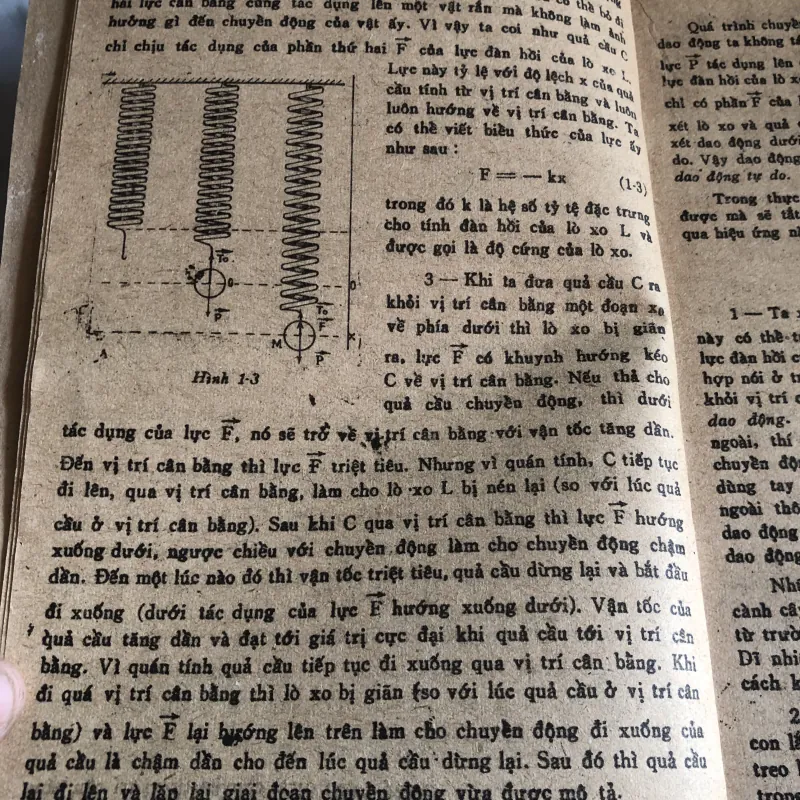 hai lực cân bằng cùng tác dụng lên một vật rắn mà không làm ảnh
hưởng gì đến chuyển động của vật ấy. Vì vậy ta coi như quả cầu C
chỉ chịu tác dụng của phần thứ hai F của lực đàn hồi của lò xo L.
Lực này tỷ lệ với độ lệch x của quả
cầu tính từ vị trí cân bằng và luôn
luôn hướng về vị trí cân bằng. Ta
có thể viết biểu thức của lực ấy
như sau :
F = — kx (1-3)
trong đó k là hệ số tỷ tệ đặc trưng
cho tính đàn hồi của lò xo L và
được gọi là độ cứng của lò xo.
3 — Khi ta đưa quả cầu C ra
khỏi vị trí cân bằng một đoạn xo
về phía dưới thì lò xo bị giãn
ra, lực F có khuynh hướng kéo
C về vị trí cân bằng. Nếu thả cho
quả cầu chuyển động, thì dưới
To
O
O
P
To
F
M
x
P
A
Hình 1-3
tác dụng của lực F, nó sẽ trở về vị trí cân bằng với vận tốc tăng dần.
Đến vị trí cân bằng thì lực F triệt tiêu. Nhưng vì quán tính, C tiếp tục
đi lên, qua vị trí cân bằng, làm cho lò xo L bị nén lại (so với lúc quả
cầu ở vị trí cân bằng). Sau khi C qua vị trí cân bằng thì lực F hướng
xuống dưới, ngược chiều với chuyển động làm cho chuyển động chậm
dần. Đến một lúc nào đó thì vận tốc triệt tiêu, quả cầu dừng lại và bắt đầu
đi xuống (dưới tác dụng của lực F hướng xuống dưới). Vận tốc của
quả cầu tăng dần và đạt tới giá trị cực đại khi quả cầu tới vị trí cân
bằng. Vì quán tính quả cầu tiếp tục đi xuống qua vị trí cân bằng. Khi
đi quá vị trí cân bằng thì lò xo bị giãn (so với lúc quả cầu ở vị trí cân
bằng) và lực F lại hướng lên trên làm cho chuyển động đi xuống của
quả cầu là chậm dần cho đến lúc quả cầu dừng lại. Sau đó thì quả cầu
lại đi lên và lặp lại giai đoạn chuyển động vừa được mô tả.
Quá trình chuyể
dao động ta không
lực P tác dụng lên
lực đàn hồi của lò xo
chỉ có phần F của
xét lò xo và quả
xét dao động dưới
do. Vậy dao động
dao động tự do.
Trong thực
được mà sẽ tắt
qua hiệu ứng
1 — Ta
này có thể
lực đàn hồi
hợp nói ở
khỏi vị trí
dao động.
ngoài, thí
chuyển độ
dùng tay
ngoài
dao động
dao động
cành
từ trườ
Dĩ
cách
2
con
treo
trong